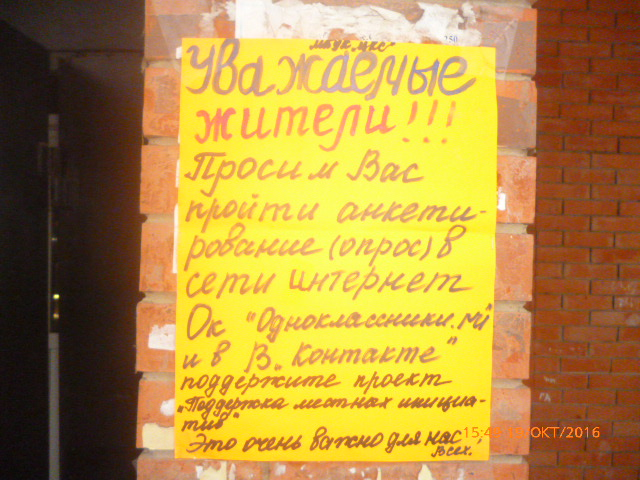 МБУК "ЦКС"
Уважаемые
жители!!!
Просим Вас
пройти анкети-
рование (опрос) в
сети интернет
Ок "Одноклассники.
и в В„Контакте"
поддержите проект
„Поддержка местнах инициа-
тив"
Это очень важно для нас
всех.
ОКТ/2016